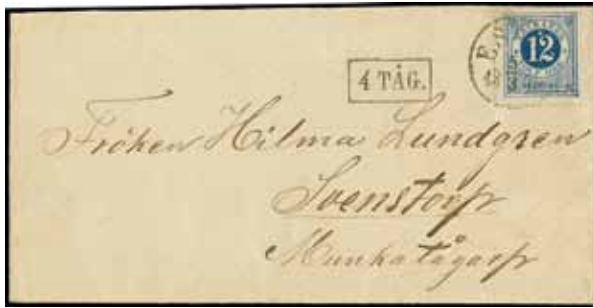 12
4 TÅG.
Fröken Hilma Lundgren
Svenstorp
Munkatågarp